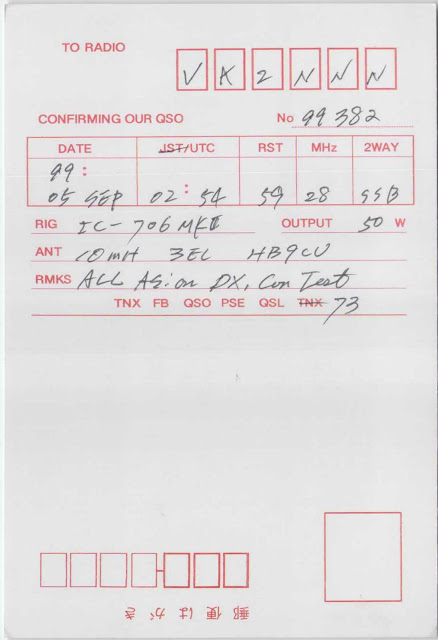 TO RADIO
VK2NNN
CONFIRMING OUR QSO No 99382
DATE JST/UTC RST MHz 2WAY
99:
05 SEP 02:54 59 28 SSB
RIG IC-706MKII OUTPUT 50 W
ANT 10mH 3EL HB9CV
RMKS ALL Asian DX, ConTest
TNX FB QSO PSE QSL TNX 73
郵便はがき